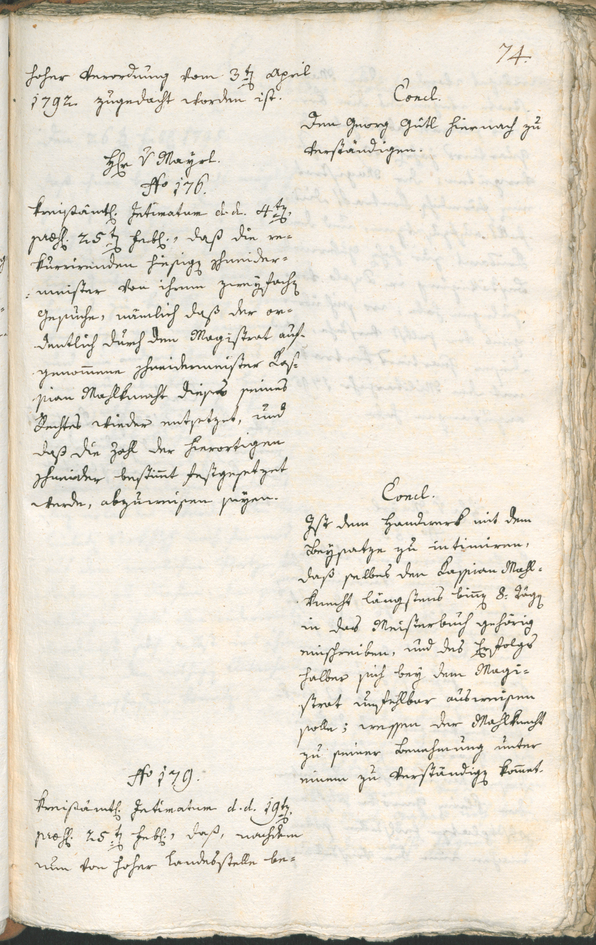 74.
hoher Verordnung vom 3t. April
1792. zugedacht worden ist.
Concl.
Dem Georg Gütl hiernach zu
verständigen.
Hr. v Mayrl.
No 176.
Kreisämtl. Intimatum d.d. 4t.
praes. 25t. Febr., daß die re-
kurrirenden hiesige Schneider-
meister von ihrem zweyfache
Gesuche, nämlich daß der or-
dentlich durch den Magistrat auf-
genommene Schneidermeister Kas-
sian Mahlknecht dieses seines
Rechtes wieder entsetzet, und
daß die Zahl der hierortigen
Schneider bestimt festgesetzet
werde, abzuweisen seyen.
Concl.
Ist dem Handwerk mit dem
Beysatze zu intimiren,
daß selbes den Kassian Mahl-
knecht längstens biñ 8. Täg
in das Meisterbuch gehörig
einschreiben, und des Erfolgs
halber sich bey dem Magi-
strat unfehlbar ausweisen
solle; wessen der Mahlknecht
zu seiner Benehmung unter
einem zu verständig kommet.
No 179.
Kreisämtl. Intimatum d.d. 19t.
praes. 25t. Febr., daß, nachdem
nun von hoher Landesstelle be-